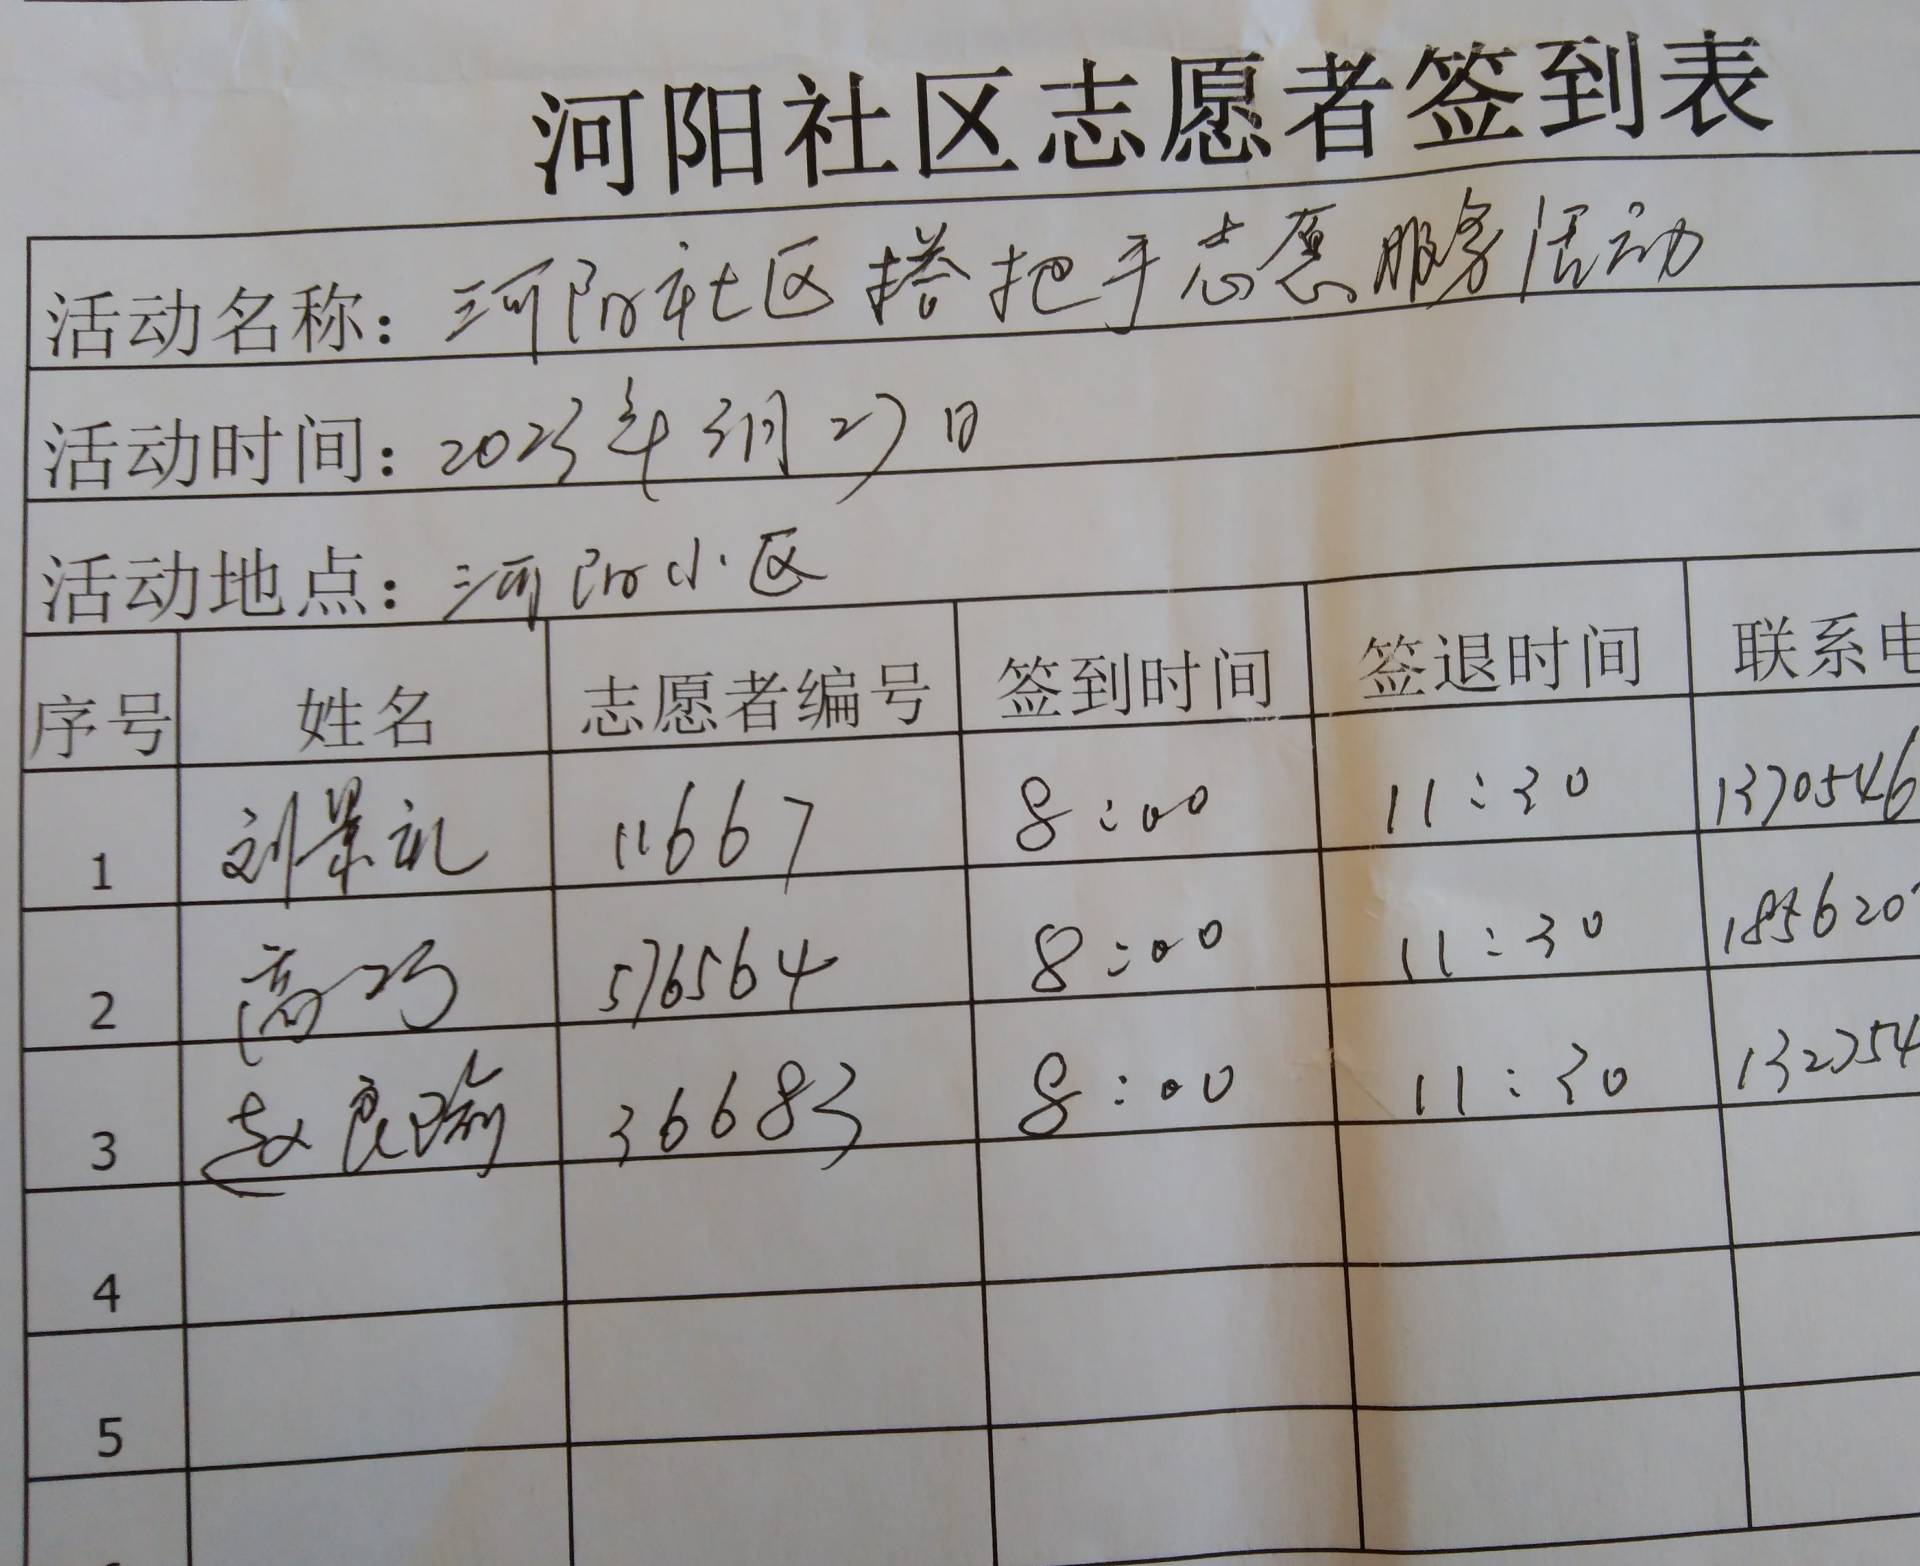 河阳社区志愿者签到表
活动名称：河阳社区搭把手志愿服务活动
活动时间：2023年3月27日
活动地点：河阳小区
序号 姓名 志愿者编号 签到时间 签退时间 联系电
1 刘景礼 11667 8:00 11:30 1370546
2 高巧 576564 8:00 11:30 185620
3 赵良瑜 36683 8:00 11:30 132754
4
5